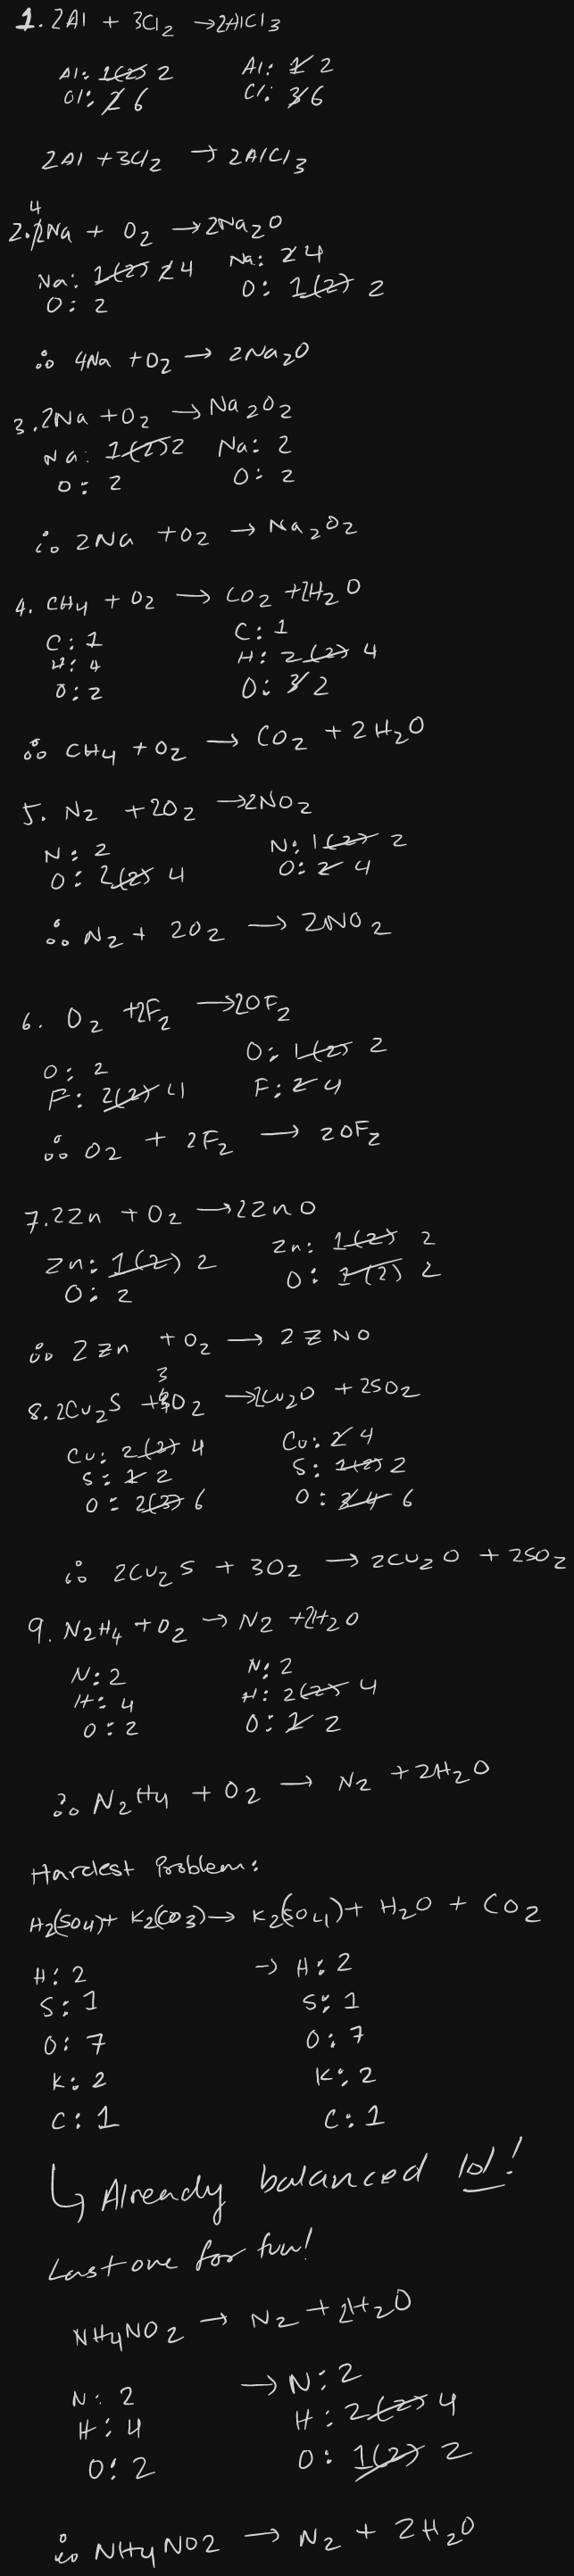 1. 2Al + 3Cl2 → 2AlCl3
Al: 1(2) 2 Al: 1 2
Cl: 2 6 Cl: 3 6
2Al + 3Cl2 → 2AlCl3
4
2. 2Na + O2 → 2Na2O
Na: 1(2) 2 4 Na: 2 4
O: 2 O: 1(2) 2
∴ 4Na + O2 → 2Na2O
3. 2Na + O2 → Na2O2
Na: 1(2) 2 Na: 2
O: 2 O: 2
∴ 2Na + O2 → Na2O2
4. CH4 + O2 → CO2 + 2H2O
C: 1 C: 1
H: 4 H: 2(2) 4
O: 2 O: 3 2
∴ CH4 + O2 → CO2 + 2H2O
5. N2 + 2O2 → 2NO2
N: 2 N: 1(2) 2
O: 2(2) 4 O: 2 4
∴ N2 + 2O2 → 2NO2
6. O2 + 2F2 → 2OF2
O: 2 O: 1(2) 2
F: 2(2) 4 F: 2 4
∴ O2 + 2F2 → 2OF2
7. 2Zn + O2 → 2ZnO
Zn: 1(2) 2 Zn: 1(2) 2
O: 2 O: 1(2) 2
∴ 2Zn + O2 → 2ZNO
3
8. 2Cu2S + O2 → 2Cu2O + 2SO2
Cu: 2(2) 4 Cu: 2 4
S: 1 2 S: 1(2) 2
O: 2(3) 6 O: 3 4 6
∴ 2Cu2S + 3O2 → 2Cu2O + 2SO2
9. N2H4 + O2 → N2 + 2H2O
N: 2 N: 2
H: 4 H: 2(2) 4
O: 2 O: 1 2
∴ N2H4 + O2 → N2 + 2H2O
Hardest Problem:
H2(SO4) + K2(CO3) → K2(SO4) + H2O + CO2
H: 2 → H: 2
S: 1 S: 1
O: 7 O: 7
K: 2 K: 2
C: 1 C: 1
↳ Already balanced lol!
Last one for fun!
NH4NO2 → N2 + 2H2O
N: 2 → N: 2
H: 4 H: 2(2) 4
O: 2 O: 1(2) 2
∴ NH4NO2 → N2 + 2H2O